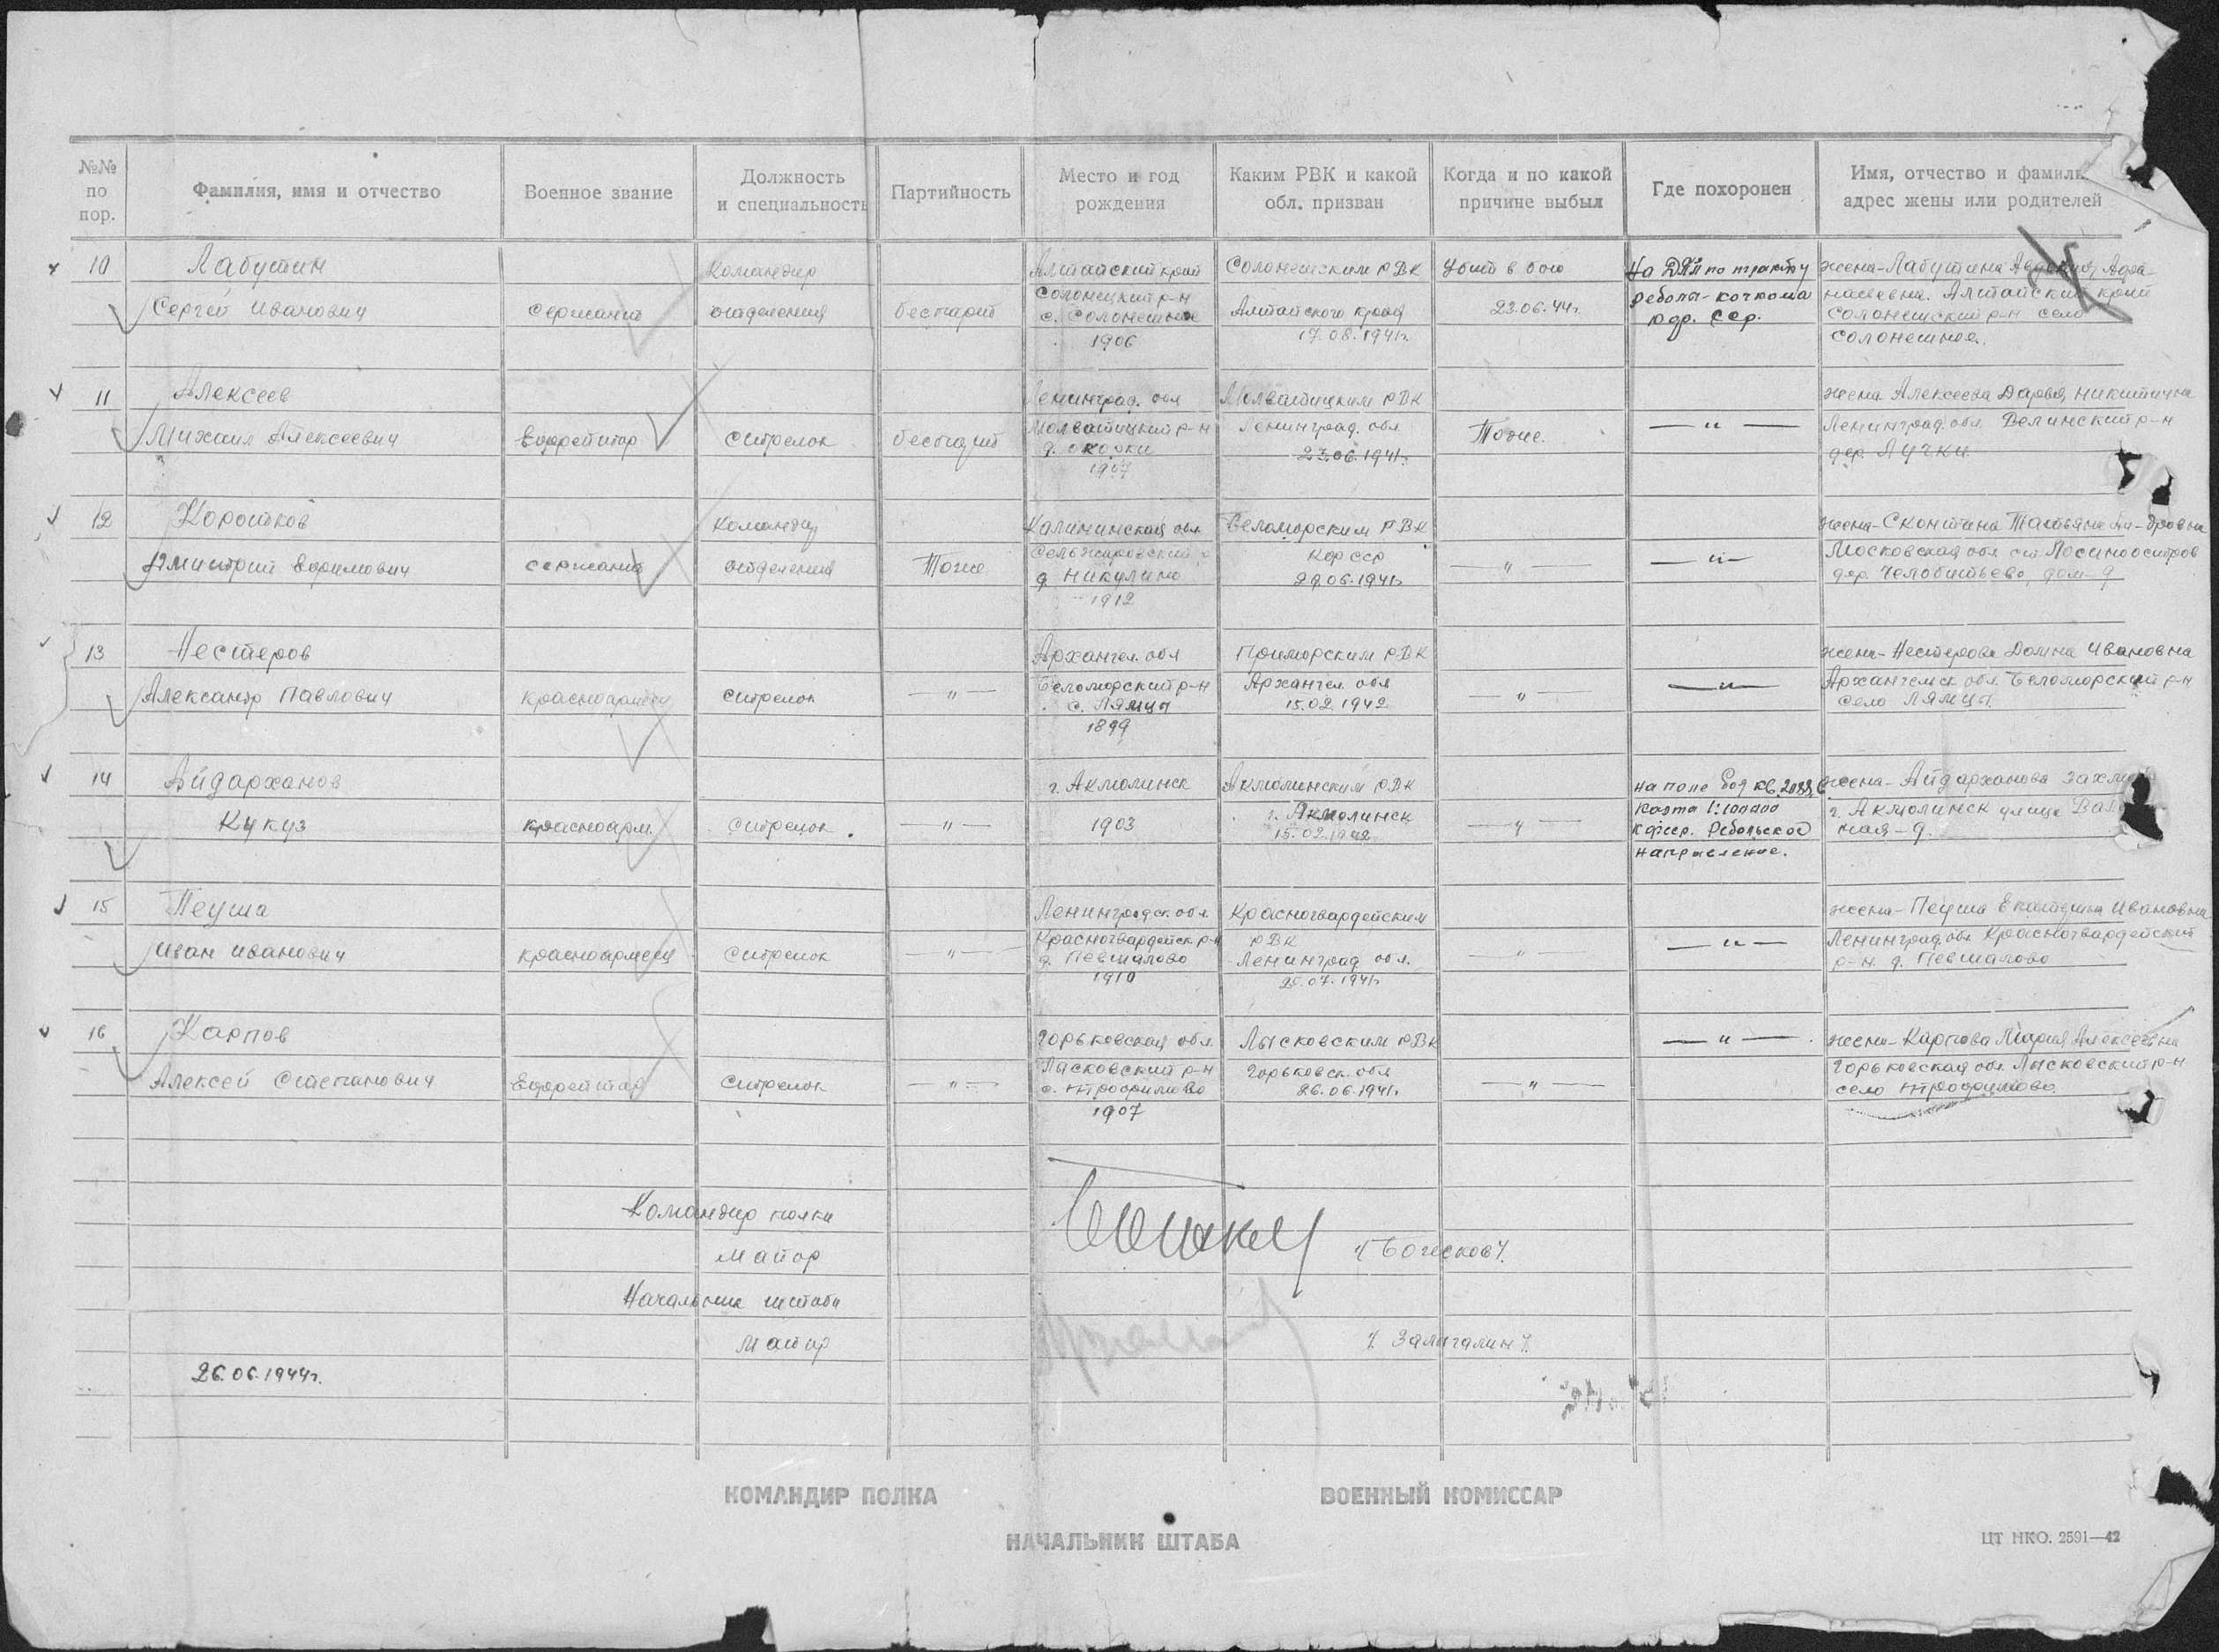 №№ по пор.
Фамилия, имя и отчество
Военное звание
Должность и специальность
Партийность
Место и год рождения
Каким РВК и какой обл. призван
Когда и по какой причине выбыл
Где похоронен
Имя, отчество и фамиль
адрес жены или родителей
10
Лабутин
Сергей Иванович
сержант
Командир
отделения
беспарт
Алтайский край
Солонецкий р-н
с. Солонешное
1906
Солонешским РВК
Алтайского края
17.08.1941г.
Убит в бою
23.06.44г.
по тракту
Реболы-кочкома
жена-Лабутина Афа-
насевна. Алтайский край
Солонешский р-н село
Солонешное.
11
Алексеев
Михаил Алексеевич
Ефрейтор
Стрелок
беспарт
Ленинград. обл
Молватицкий р-н
1907
Молватицким РВК
Ленинград. обл
23.06.1941г.
Тоже.
— " —
жена Алексеева Дарья Никитична
Ленинград. обл. р-н
дер. Лучки.
12
Коротков
Дмитрий Ефимович
сержант
Командир
отделения
Тоже
Калининская обл
д. Никулино
1912
Беломорским РВК
29.06.1941г.
— " —
— " —
жена-
Московская обл
дер. Челобитьево, дом-9
13
Нестеров
Александр Павлович
красноармеец
стрелок
— " —
Архангел. обл
Беломорский р-н
с. Лямца
1899
Приморским РВК
Архангел. обл
15.02.1942
— " —
— " —
жена-Нестерова Ивановна
Архангельск. обл. Беломорский р-н
село Лямца.
14
Айдарханов
Кукуз
красноарм.
Стрелок.
— " —
г. Акмолинск
1903
Акмолинским РВК
г. Акмолинск
15.02.1942
— " —
на поле боя
Карта 1:100000
Ребольское
направление.
жена-Айдарханова
г. Акмолинск улица
ная-9.
15
Пеуша
Иван Иванович
красноармеец
Стрелок
— " —
Ленинградск. обл
Красногвардейск р-н
д. Певшалово
1910
Красногвардейским
РВК
Ленинград обл.
— " —
— " —
жена-Пеуша Екатерина Ивановна
Ленинград. обл. Красногвардейский
р-н. д. Певшалово
16
Карпов
Алексей Степанович
Ефрейтор
Стрелок
— " —
Горьковская обл.
Лысковский р-н
с. Трофимово
1907
Лысковским РВК
Горьковск. обл
26.06.1941г.
— " —
— " —
жена-Карпова Мария Алексеевна
Горьковская обл. Лысковский р-н
село Трофимово.
Командир полка
Майор
Начальник штаба
Майор
26.06.1944г.
КОМАНДИР ПОЛКА
ВОЕННЫЙ КОМИССАР
НАЧАЛЬНИК ШТАБА
ЦТ НКО. 2591—42